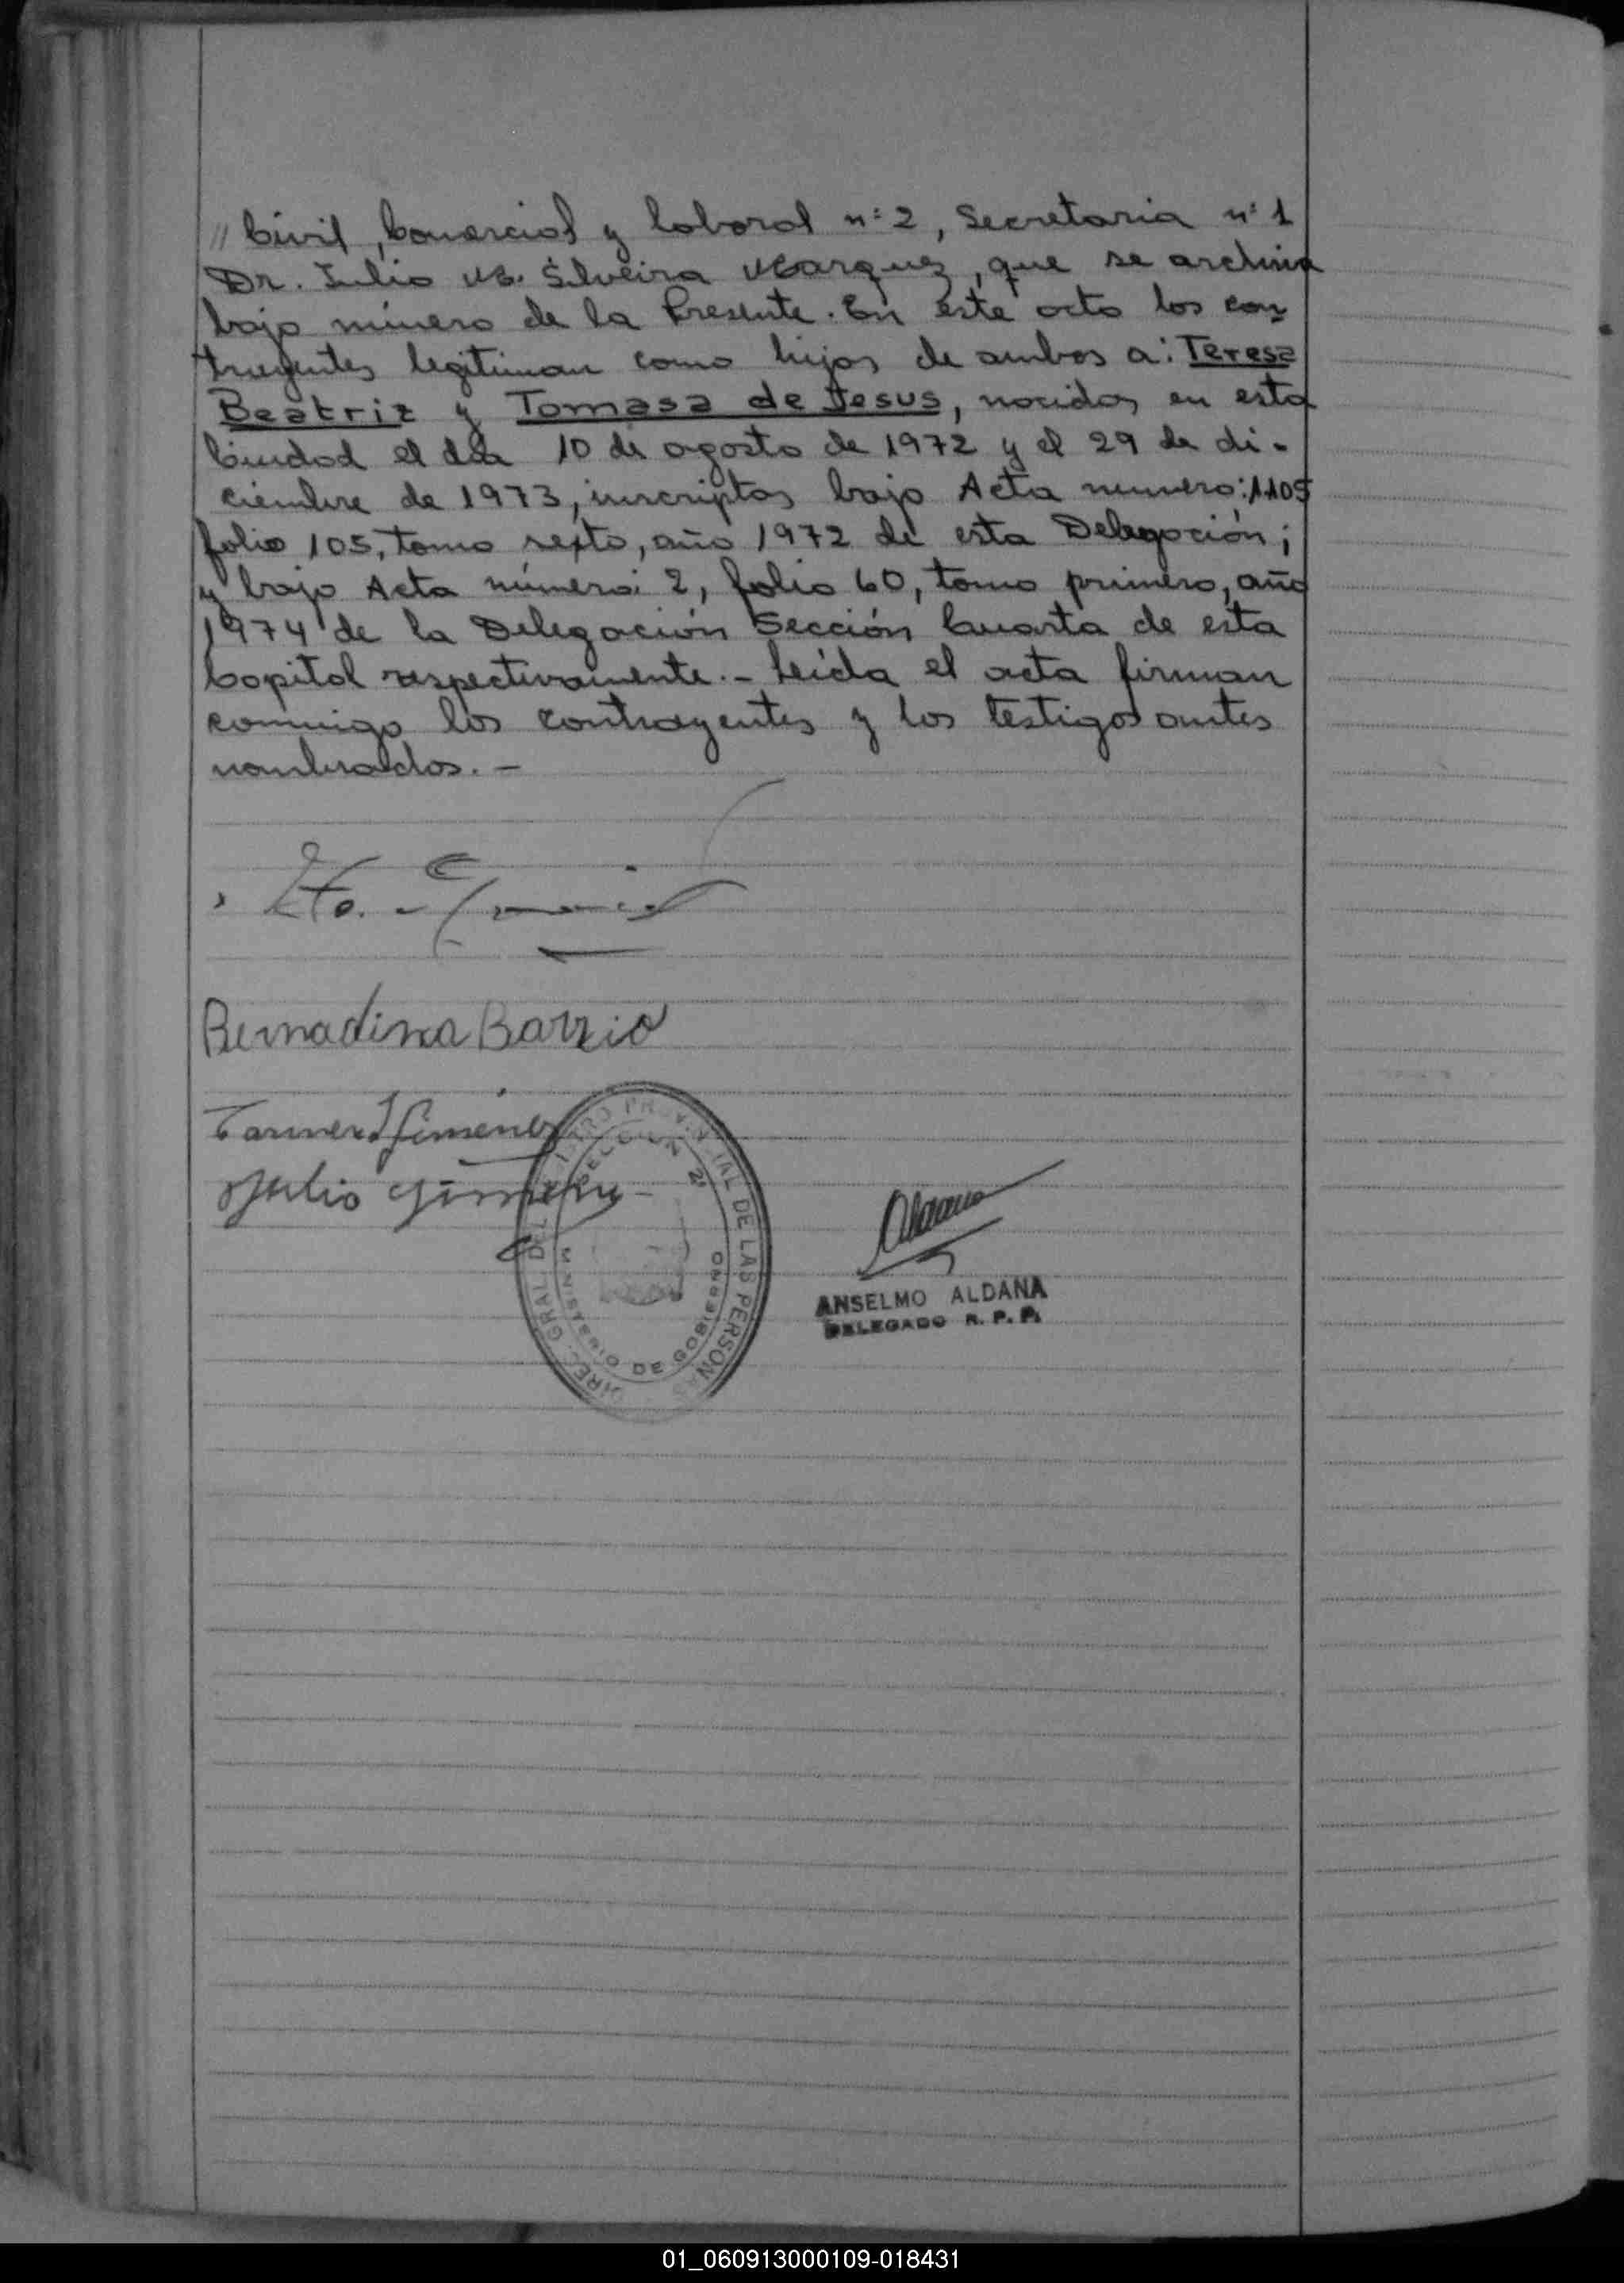 // Civil, Comercial y Laboral n: 2, Secretaria n: 1
Dr. Julio M. Silveira Marquez, que se archiva
bajo número de la Presente. En este acto los con-
trayentes legitiman como hijos de ambos a: Teresa
Beatriz y Tomasa de Jesus, nacidas en esta
Ciudad el día 10 de agosto de 1972 y el 29 de di-
ciembre de 1973, inscriptas bajo Acta numero: 1105
folio 105, tomo sexto, año 1972 de esta Delegación;
y bajo Acta número: 2, folio 60, tomo primero, año
1974 de la Delegación Sección Cuarta de esta
Capital respectivamente. - Leída el acta firman
conmigo los contrayentes y los testigos antes
nombrados. -
Bernadina Barrio
Carmen Gimenez
Julio Gimenez
DIREC. GRAL. DEL REGISTRO PROVINCIAL DE LAS PERSONAS
MINISTERIO DE GOBIERNO
Aldana
ANSELMO ALDANA
DELEGADO R. P. P.
01_060913000109-018431